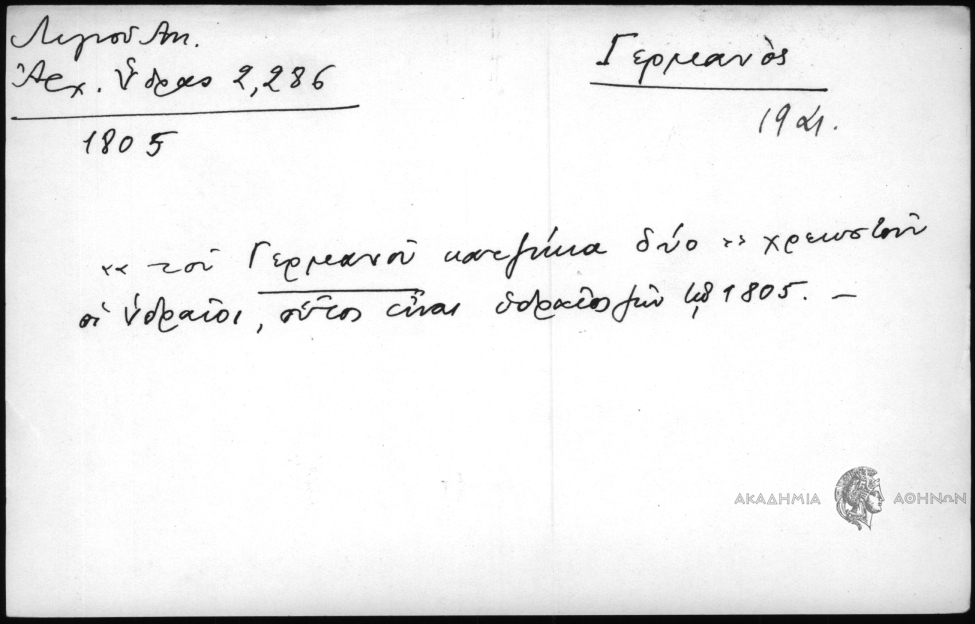 Λιγνοῦ Ἀν.
Ἀρχ. Ὕδρας 2,286
1805
Γερμανὸς
« τοῦ Γερμανοῦ κατζίκα δύο » χρεωστοῦν
οἱ Ὑδραῖοι, οὗτος εἶναι ὑδραῖος ζῶν 1805. –
ΑΚΑΔΗΜΙΑ ΑΘΗΝΩΝ